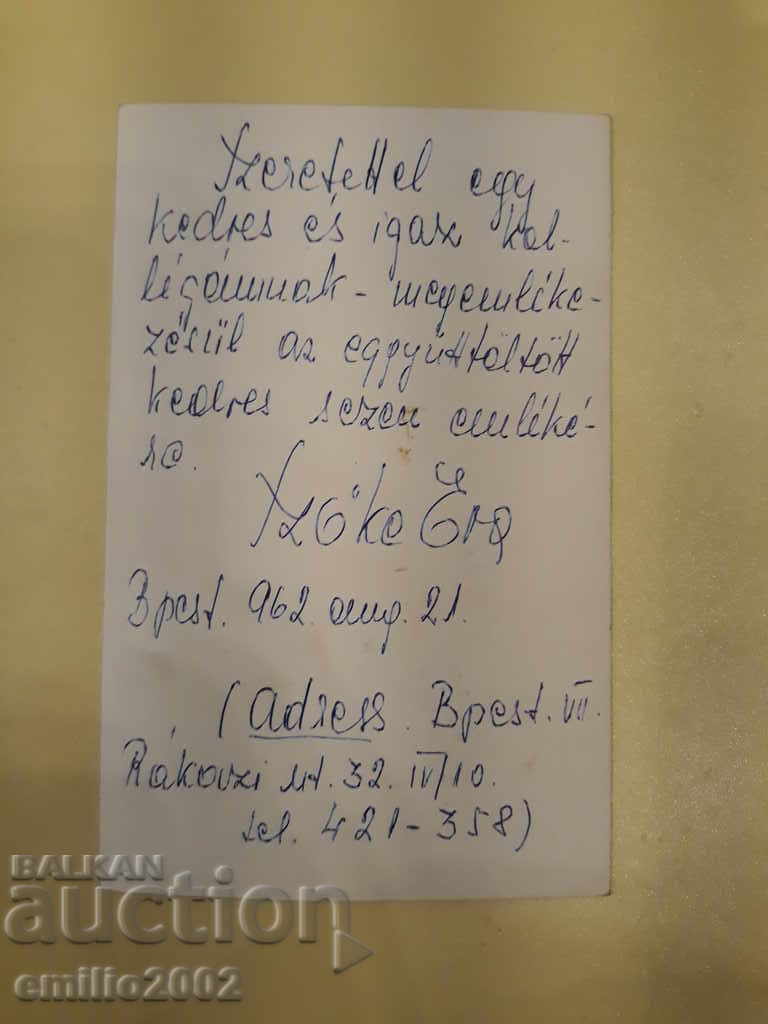 Szeretettel egy
kedves és igaz kol-
légámnak - megemléke-
zésül az együttöltött
kedves sezon emléké-
re.
Szőke Éva
Bpest. 962 aug. 21.
(Adress. Bpest. VII.
Rákovzi ut. 32. IV/10.
tel. 421-358)
BALKAN
auction
emilio2002